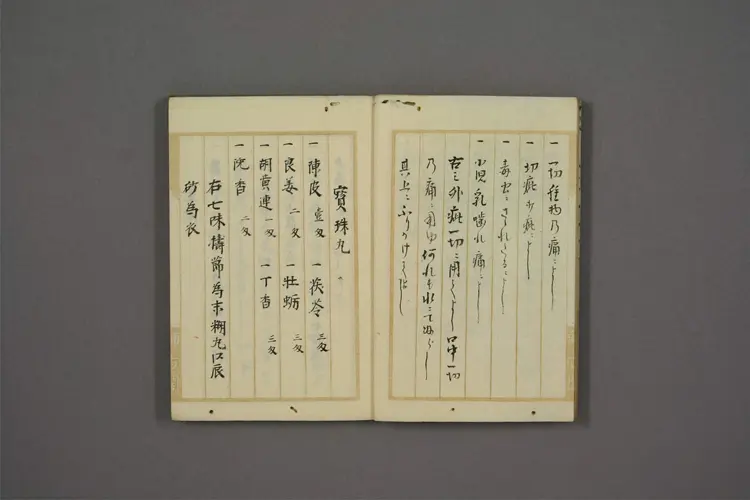 一 一切腫物乃痛ニよし
一 切疵打疵ニよし
一 毒虫ニさされたるによし
一 小児乳噛れ痛ニよし
右之外疵一切ニ用てよし 口中一切
乃痛ニ用ゆ何れも水ニて
其上ニふりかけてよし
寳珠丸
一 陳皮 壹匁 一 茯苓 三匁
一 良姜 二匁 一 牡蛎 三匁
一 胡黄連 一匁 一 丁香 三匁
一 沈香 二匁
右七味擣篩為末糊丸以辰
砂為衣